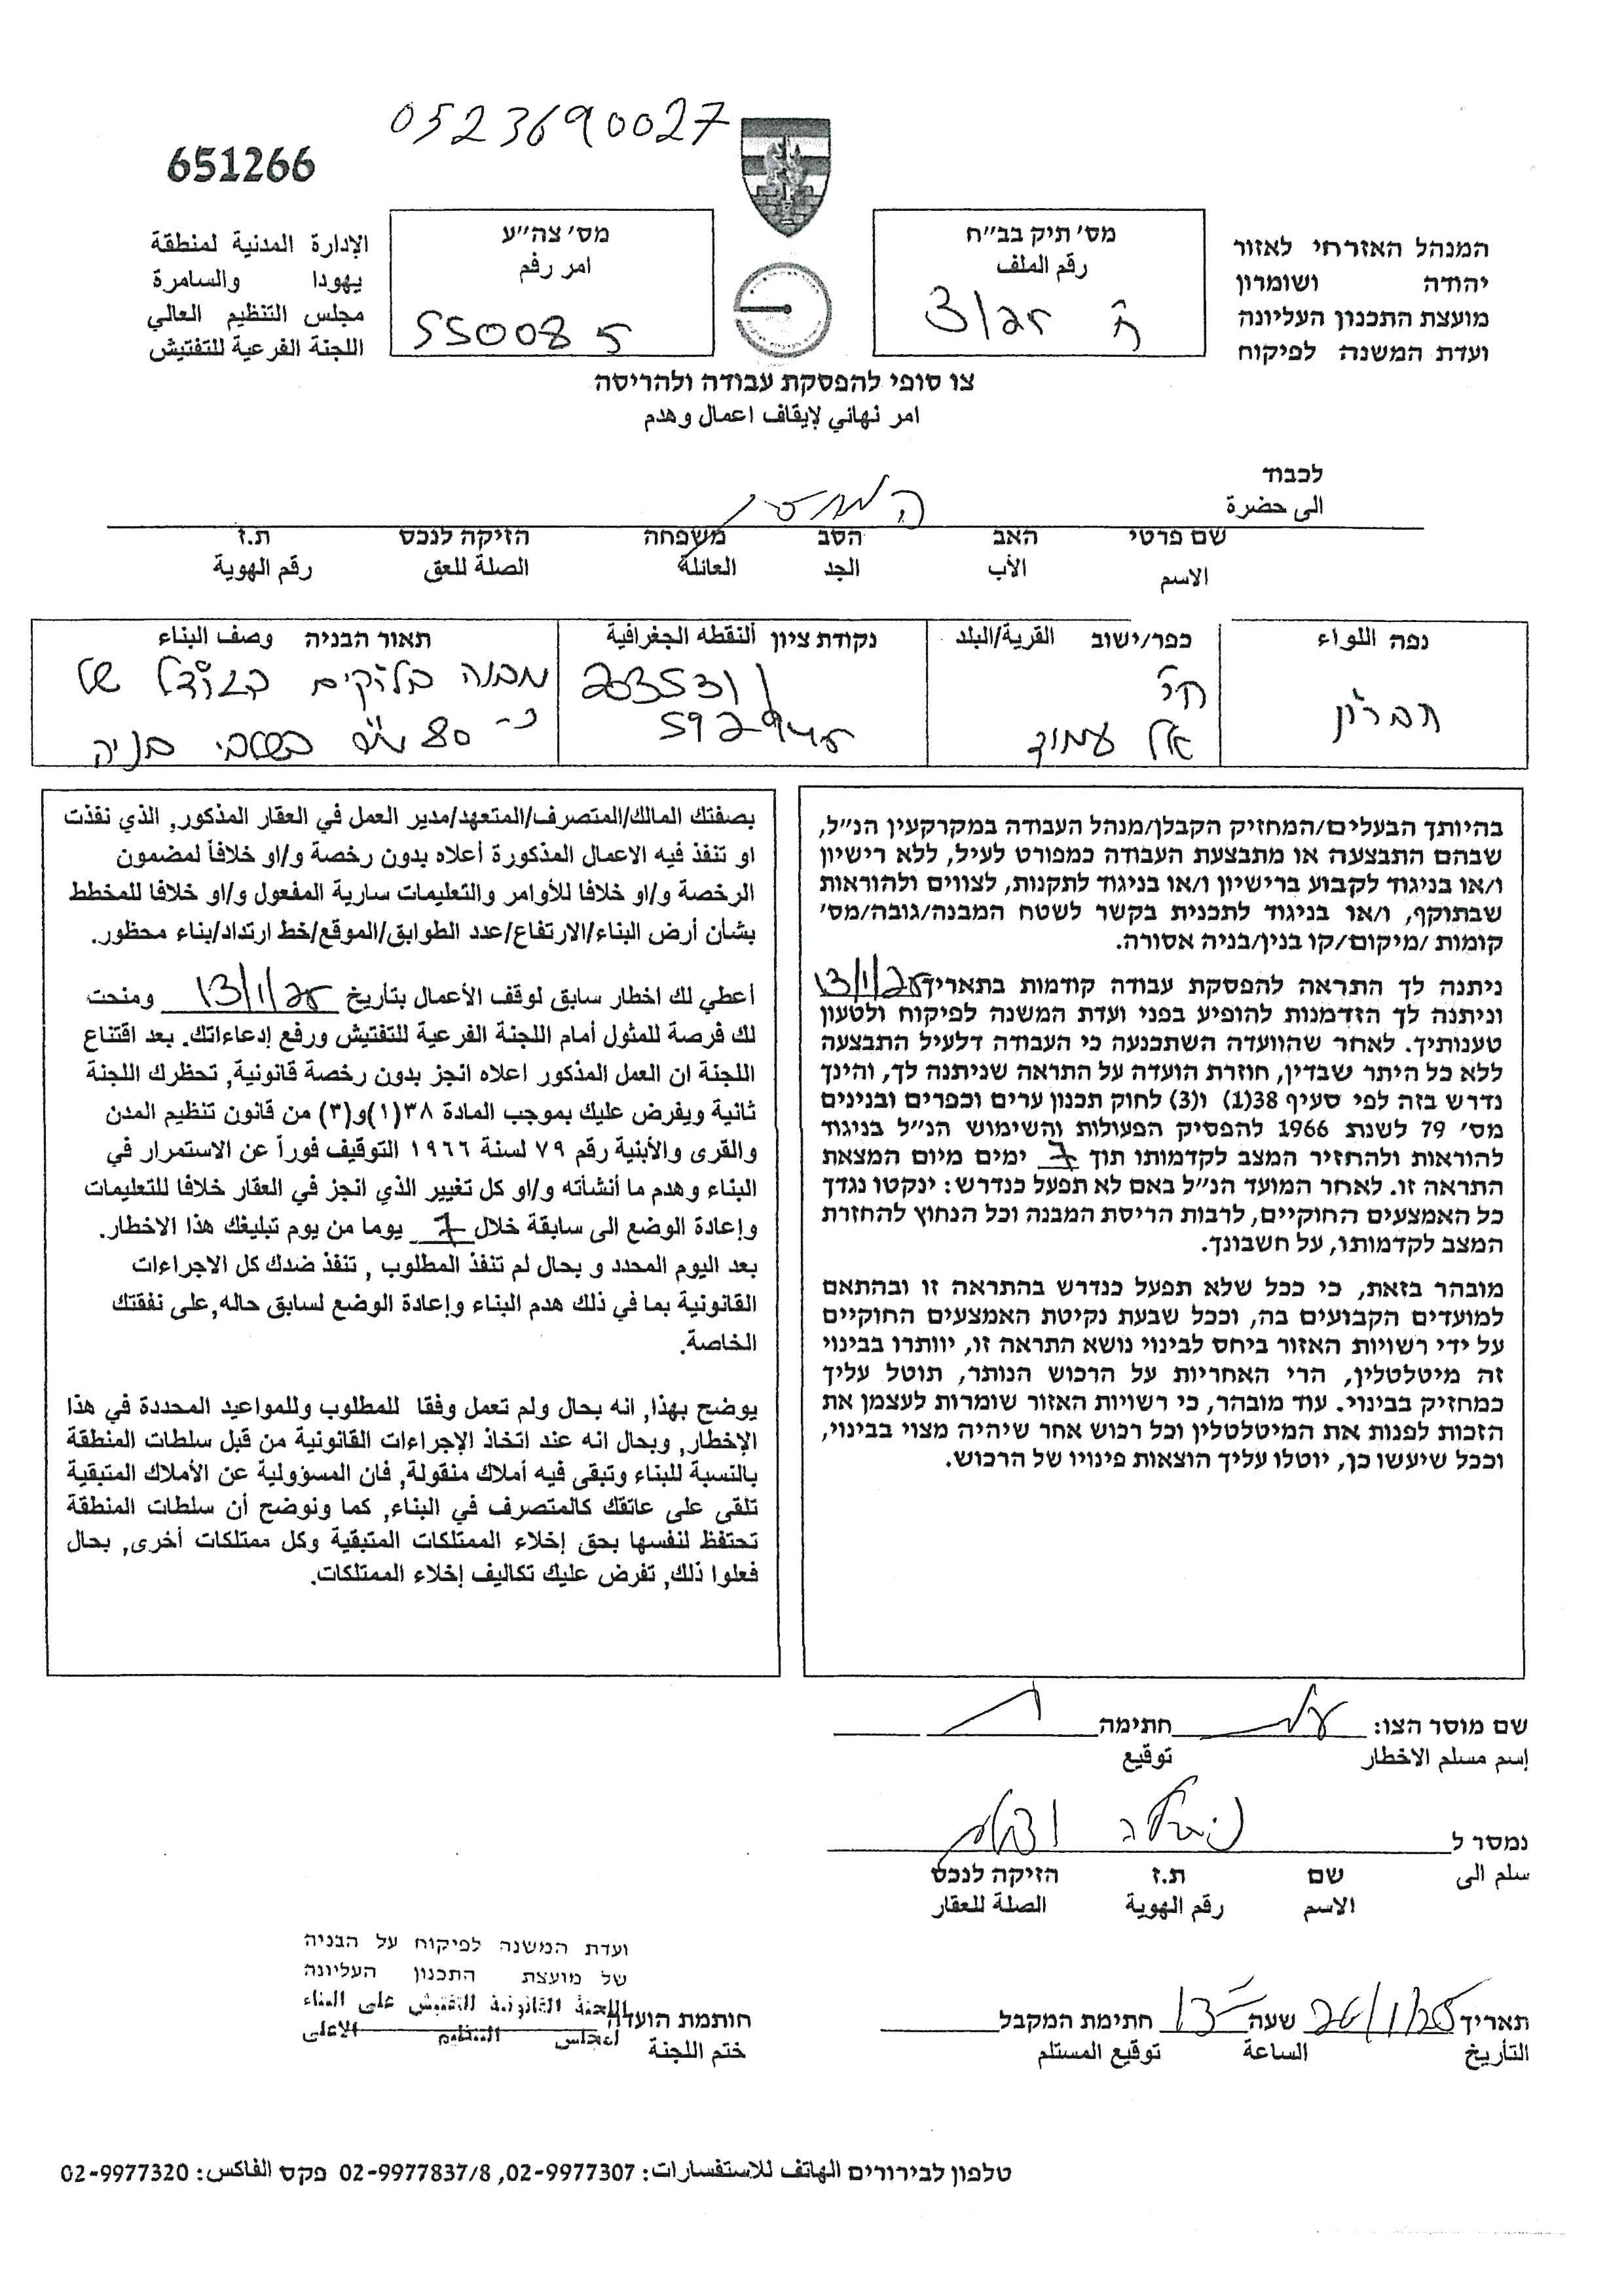 0523690027
651266
המנהל האזרחי לאזור
יהודה ושומרון
מועצת התכנון העליונה
ועדת המשנה לפיקוח
מס׳ תיק בב״ח
رقم الملف
ח 3/25
מס׳ צה״ע
امر رقم
550085
الإدارة المدنية لمنطقة
يهودا والسامرة
مجلس التنظيم العالي
اللجنة الفرعية للتفتيش
צו סופי להפסקת עבודה ולהריסה
امر نهائي لإيقاف اعمال وهدم
לכבוד
الى حضرة
המחזיק
שם פרטי האב הסב משפחה הזיקה לנכס ת.ז
الاسم الأب الجد العائلة الصلة للعق رقم الهوية
נפה اللواء
חברון
כפר/ישוב القرية/البلد
חי'
אל עמוד
נקודת ציון ألنقطه الجغرافية
203531/
592945
תאור הבניה وصف البناء
מבנה בלוקים בגודל של
כ- 80 מ"ר בשלבי בניה
בהיותך הבעלים/המחזיק הקבלן/מנהל העבודה במקרקעין הנ״ל,
שבהם התבצעה או מתבצעת העבודה כמפורט לעיל, ללא רישיון
ו/או בניגוד לקבוע ברישיון ו/או בניגוד לתקנות, לצווים ולהוראות
שבתוקף, ו/או בניגוד לתכנית בקשר לשטח המבנה/גובה/מס׳
קומות /מיקום/קו בנין/בניה אסורה.
ניתנה לך התראה להפסקת עבודה קודמות בתאריך 13/1/25
וניתנה לך הזדמנות להופיע בפני ועדת המשנה לפיקוח ולטעון
טענותיך. לאחר שהוועדה השתכנעה כי העבודה דלעיל התבצעה
ללא כל היתר שבדין, חוזרת הועדה על התראה שניתנה לך, והינך
נדרש בזה לפי סעיף 38(1) ו(3) לחוק תכנון ערים וכפרים ובנינים
מס׳ 79 לשנת 1966 להפסיק הפעולות והשימוש הנ״ל בניגוד
להוראות ולהחזיר המצב לקדמותו תוך 7 ימים מיום המצאת
התראה זו. לאחר המועד הנ״ל באם לא תפעל כנדרש: ינקטו נגדך
כל האמצעים החוקיים, לרבות הריסת המבנה וכל הנחוץ להחזרת
המצב לקדמותו, על חשבונך.
מובהר בזאת, כי ככל שלא תפעל כנדרש בהתראה זו ובהתאם
למועדים הקבועים בה, וככל שבעת נקיטת האמצעים החוקיים
על ידי רשויות האזור ביחס לבינוי נושא התראה זו, יוותרו בבינוי
זה מיטלטלין, הרי האחריות על הרכוש הנותר, תוטל עליך
כמחזיק בבינוי. עוד מובהר, כי רשויות האזור שומרות לעצמן את
הזכות לפנות את המיטלטלין וכל רכוש אחר שיהיה מצוי בבינוי,
וככל שיעשו כן, יוטלו עליך הוצאות פינויו של הרכוש.
بصفتك المالك/المتصرف/المتعهد/مدير العمل في العقار المذكور, الذي نفذت
او تنفذ فيه الاعمال المذكورة أعلاه بدون رخصة و/او خلافاً لمضمون
الرخصة و/او خلافا للأوامر والتعليمات سارية المفعول و/او خلافا للمخطط
بشأن أرض البناء/الارتفاع/عدد الطوابق/الموقع/خط ارتداد/بناء محظور.
أعطي لك اخطار سابق لوقف الأعمال بتأريخ 13/1/25 ومنحت
لك فرصة للمثول أمام اللجنة الفرعية للتفتيش ورفع إدعاءاتك. بعد اقتناع
اللجنة ان العمل المذكور اعلاه انجز بدون رخصة قانونية, تحظرك اللجنة
ثانية ويفرض عليك بموجب المادة ٣٨(١)و(٣) من قانون تنظيم المدن
والقرى والأبنية رقم ٧٩ لسنة ١٩٦٦ التوقيف فوراً عن الاستمرار في
البناء وهدم ما أنشأته و/او كل تغيير الذي انجز في العقار خلافا للتعليمات
وإعادة الوضع الى سابقة خلال 7 يوما من يوم تبليغك هذا الاخطار.
بعد اليوم المحدد و بحال لم تنفذ المطلوب , تنفذ ضدك كل الاجراءات
القانونية بما في ذلك هدم البناء وإعادة الوضع لسابق حاله,على نفقتك
الخاصة.
يوضح بهذا, انه بحال ولم تعمل وفقا للمطلوب وللمواعيد المحددة في هذا
الإخطار, وبحال انه عند اتخاذ الإجراءات القانونية من قبل سلطات المنطقة
بالنسبة للبناء وتبقى فيه أملاك منقولة, فان المسؤولية عن الأملاك المتبقية
تلقى على عاتقك كالمتصرف في البناء, كما ونوضح أن سلطات المنطقة
تحتفظ لنفسها بحق إخلاء الممتلكات المتبقية وكل ممتلكات أخرى, بحال
فعلوا ذلك, تفرض عليك تكاليف إخلاء الممتلكات.
שם מוסר הצו: חתימה
إسم مسلم الاخطار توقيع
נמסר ל
سلم الى
שם ת.ז הזיקה לנכס
الاسم رقم الهوية الصلة للعقار
תאריך 26/1/25 שעה 13 חתימת המקבל
التأريخ الساعة توقيع المستلم
ועדת המשנה לפיקוח על הבניה
של מועצת התכנון העליונה
اللجنة القانونية للتفتيش على البناء
لمجلس التنظيم الاعلى
חותמת הועדה
ختم اللجنة
טלפון לבירורים الهاتف للاستفسارات: 02-9977307, 02-9977837/8 פקס الفاكس: 02-9977320